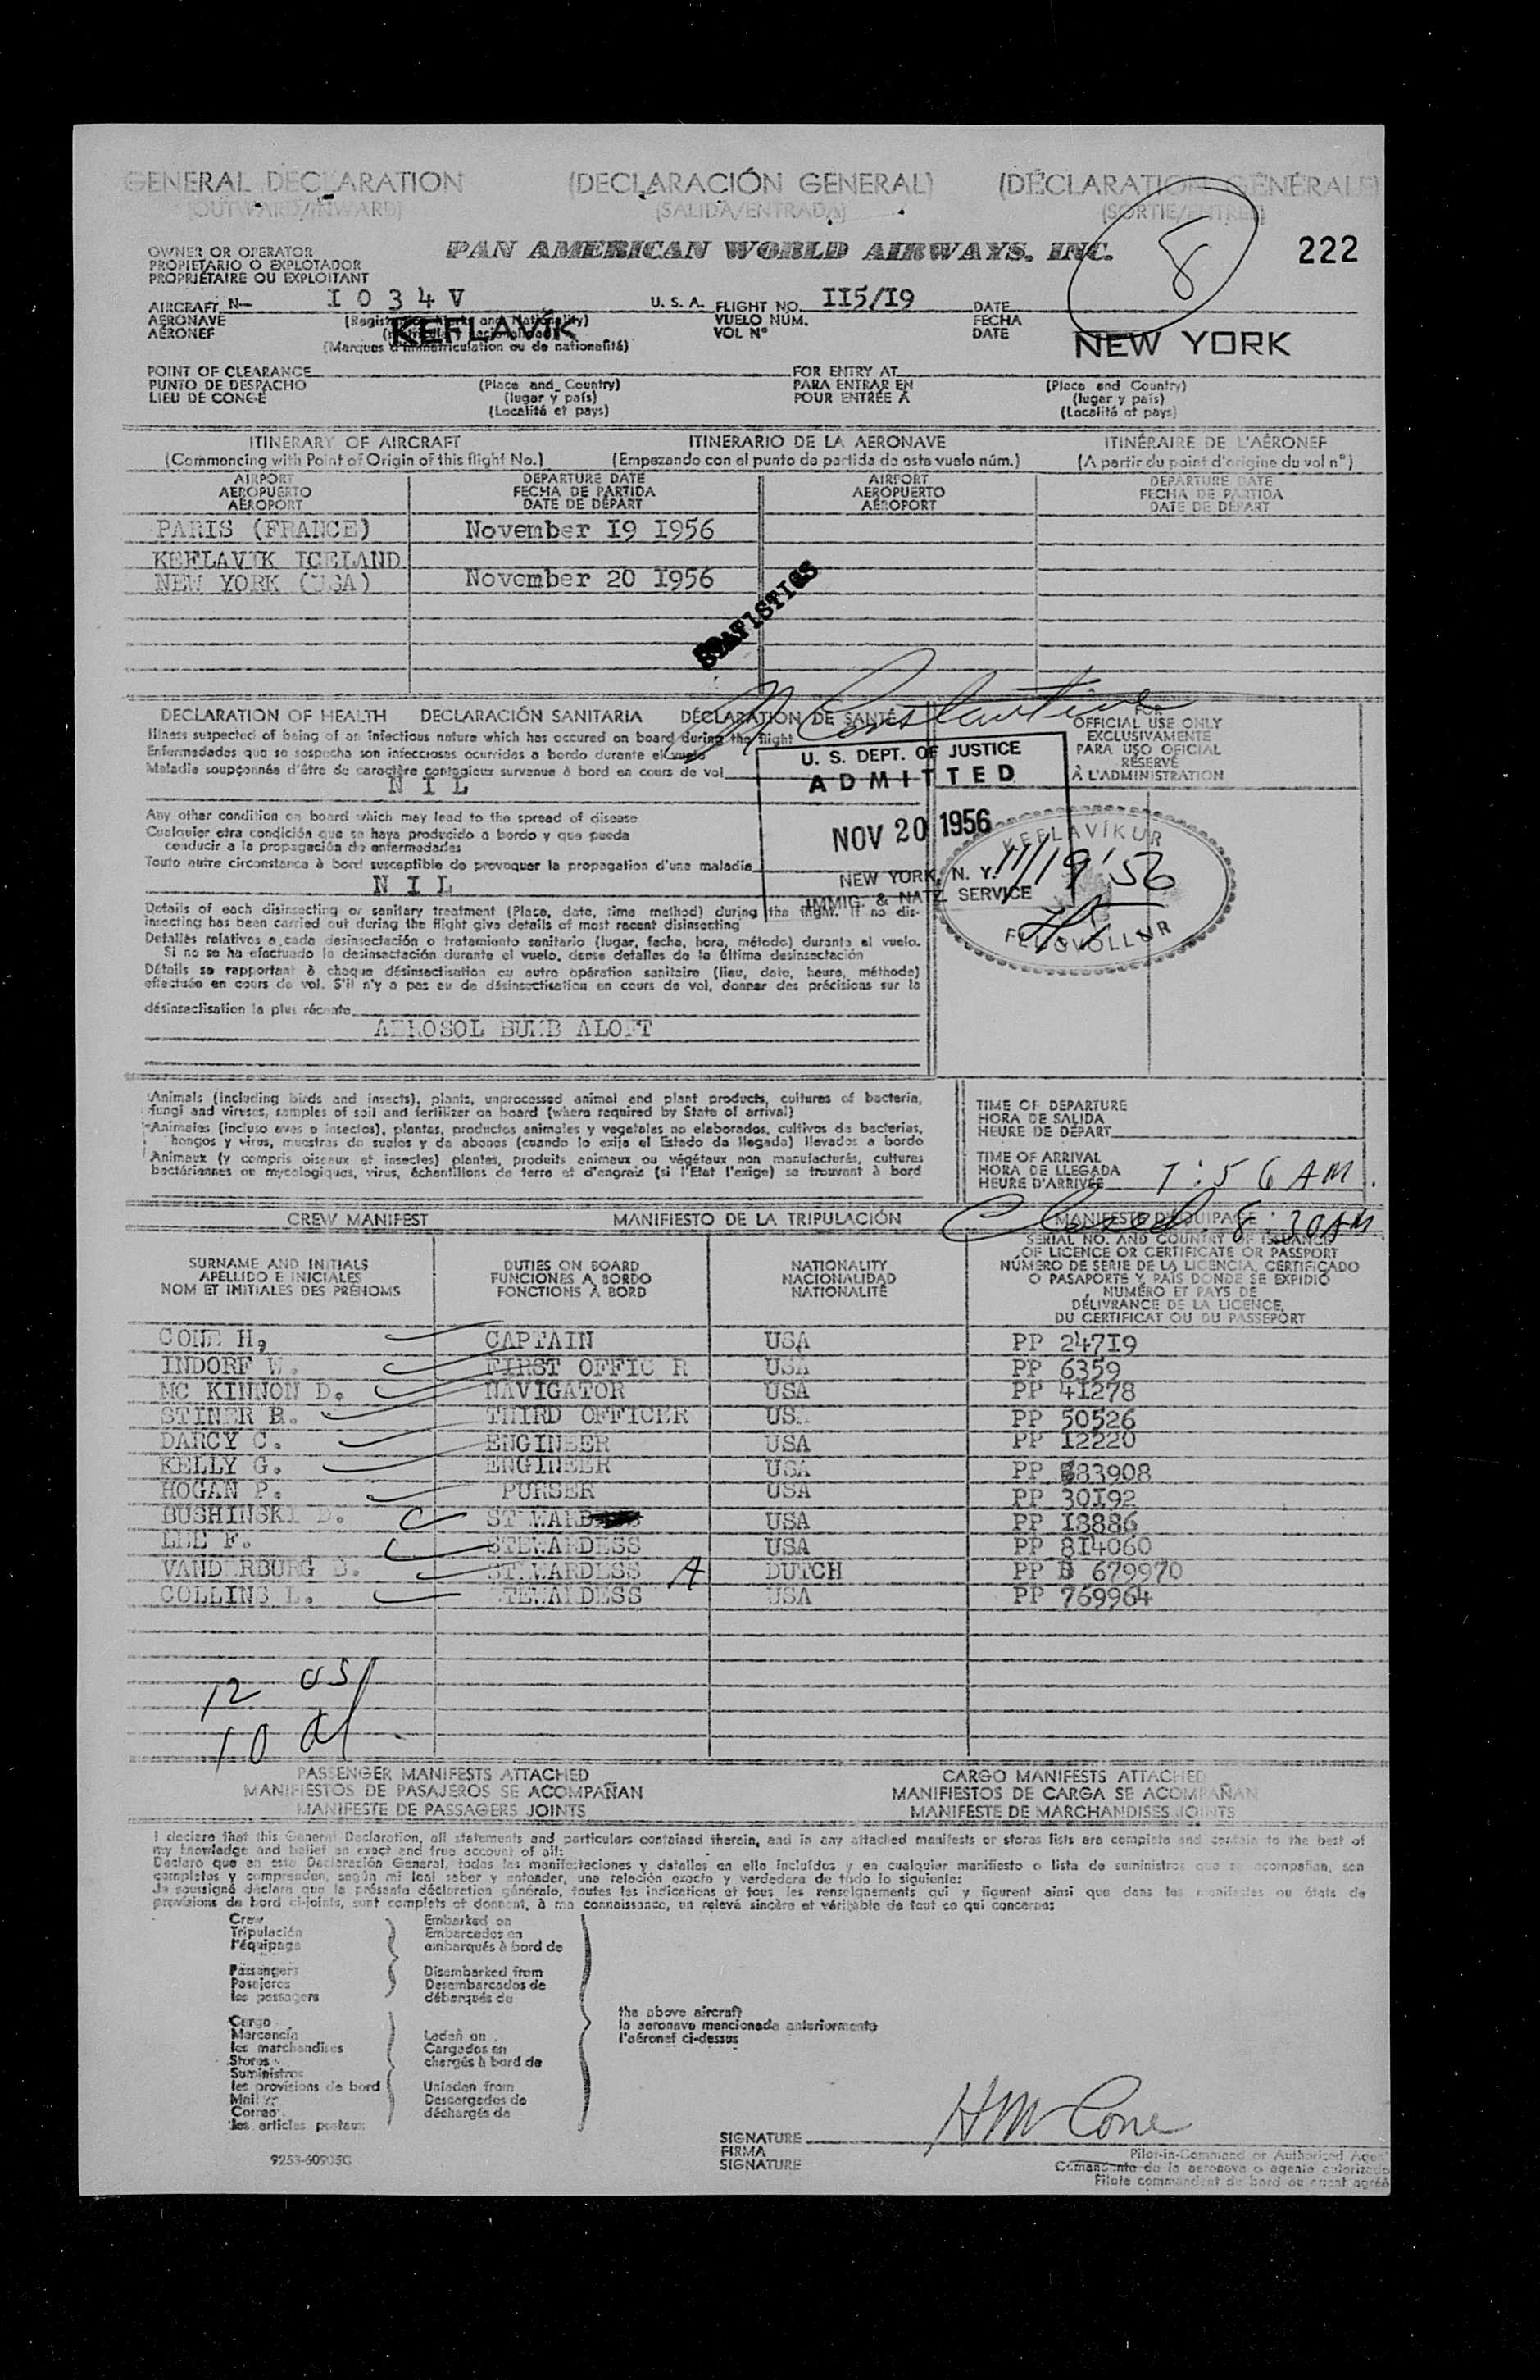 GENERAL DECLARATION (DECLARACIÓN GENERAL) (DÉCLARATION GÉNÉRALE)
(OUTWARD/INWARD) (SALIDA/ENTRADA) (SORTIE/ENTRÉE)
8
OWNER OR OPERATOR
PROPIETARIO O EXPLOTADOR
PROPRIÉTAIRE OU EXPLOITANT
PAN AMERICAN WORLD AIRWAYS, INC.
222
AIRCRAFT N— I 0 3 4 V U. S. A. FLIGHT NO. II5/I9 DATE
AERONAVE VUELO NÚM. FECHA
AÉRONEF VOL N° DATE
(Marques d'immatriculation ou de nationalité)
KEFLAVÍK NEW YORK
POINT OF CLEARANCE FOR ENTRY AT
PUNTO DE DESPACHO (Place and Country) PARA ENTRAR EN (Place and Country)
LIEU DE CONGÉ (lugar y país) POUR ENTRÉE À (lugar y país)
(Localité et pays) (Localité et pays)
ITINERARY OF AIRCRAFT ITINERARIO DE LA AERONAVE ITINÉRAIRE DE L'AÉRONEF
(Commencing with Point of Origin of this flight No.) (Empezando con el punto de partida de este vuelo núm.) (A partir du point d'origine du vol n°)
AIRPORT DEPARTURE DATE AIRPORT DEPARTURE DATE
AEROPUERTO FECHA DE PARTIDA AEROPUERTO FECHA DE PARTIDA
AÉROPORT DATE DE DÉPART AÉROPORT DATE DE DÉPART
PARIS (FRANCE) November I9 I956
KEFLAVIK ICELAND
NEW YORK (USA) November 20 I956
STATISTICS
Constantine
DECLARATION OF HEALTH DECLARACIÓN SANITARIA DÉCLARATION DE SANTÉ
Illness suspected of being of an infectious nature which has occured on board during the flight
Enfermedades que se sospecha son infecciosas ocurridas a bordo durante el vuelo
Maladie soupçonnée d'être de caractère contagieux survenue à bord en cours de vol
N I L
FOR
OFFICIAL USE ONLY
EXCLUSIVAMENTE
PARA USO OFICIAL
RÉSERVÉ
À L'ADMINISTRATION
U. S. DEPT. OF JUSTICE
ADMITTED
NOV 20 1956
NEW YORK, N. Y.
IMMIG. & NATZ. SERVICE
KEFLAVÍKUR
11/19'56
FLUGVÖLLUR
Any other condition on board which may lead to the spread of disease
Cualquier otra condición que se haya producido a bordo y que pueda
conducir a la propagación de enfermedades
Toute autre circonstance à bord susceptible de provoquer la propagation d'une maladie
N I L
Details of each disinsecting or sanitary treatment (Place, date, time method) during the flight. If no dis-
insecting has been carried out during the flight give details of most recent disinsecting
Detalles relativos a cada desinsectación o tratamiento sanitario (lugar, fecha, hora, método) durante el vuelo.
Si no se ha efectuado la desinsectación durante el vuelo, dense detalles de la última desinsectación
Détails se rapportant à chaque désinsectisation ou autre opération sanitaire (lieu, date, heure, méthode)
effectuée en cours de vol. S'il n'y a pas eu de désinsectisation en cours de vol, donner des précisions sur la
désinsectisation la plus récente
AEROSOL BUMB ALOFT
Animals (including birds and insects), plants, unprocessed animal and plant products, cultures of bacteria,
fungi and viruses, samples of soil and fertilizer on board (where required by State of arrival)
Animales (incluso aves e insectos), plantas, productos animales y vegetales no elaborados, cultivos de bacterias,
hongos y virus, muestras de suelos y de abonos (cuando lo exija el Estado de llegada) llevados a bordo
Animaux (y compris oiseaux et insectes) plantes, produits animaux ou végétaux non manufacturés, cultures
bactériennes ou mycologiques, virus, échantillons de terre et d'engrais (si l'État l'exige) se trouvant à bord
TIME OF DEPARTURE
HORA DE SALIDA
HEURE DE DÉPART
TIME OF ARRIVAL
HORA DE LLEGADA
HEURE D'ARRIVÉE 7:56 AM.
Closed 8:30AM
CREW MANIFEST MANIFIESTO DE LA TRIPULACIÓN MANIFESTE D'ÉQUIPAGE
SURNAME AND INITIALS DUTIES ON BOARD NATIONALITY
APELLIDO E INICIALES FUNCIONES A BORDO NACIONALIDAD
NOM ET INITIALES DES PRÉNOMS FONCTIONS À BORD NATIONALITÉ
SERIAL NO. AND COUNTRY OF ISSUANCE
OF LICENCE OR CERTIFICATE OR PASSPORT
NÚMERO DE SERIE DE LA LICENCIA, CERTIFICADO
O PASAPORTE Y PAÍS DONDE SE EXPIDIÓ
NUMÉRO ET PAYS DE
DÉLIVRANCE DE LA LICENCE,
DU CERTIFICAT OU DU PASSEPORT
CONE H, CAPTAIN USA PP 247I9
INDORF W. FIRST OFFIC R USA PP 6359
MC KINNON D. NAVIGATOR USA PP 4I278
STINER R. THIRD OFFICER US PP 50526
DARCY C. ENGINEER USA PP I2220
KELLY G. ENGINEER USA PP 883908
HOGAN P. PURSER USA PP 30I92
BUSHINSKI D. ST WARD USA PP I8886
LEE F. STEWARDESS USA PP 8I4060
VAND RBURG B. ST WARDESS A DUTCH PP B 679970
COLLINS L. TEWARDESS USA PP 769964
12 US
10 al
PASSENGER MANIFESTS ATTACHED CARGO MANIFESTS ATTACHED
MANIFIESTOS DE PASAJEROS SE ACOMPAÑAN MANIFIESTOS DE CARGA SE ACOMPAÑAN
MANIFESTE DE PASSAGERS JOINTS MANIFESTE DE MARCHANDISES JOINTS
I declare that this General Declaration, all statements and particulars contained therein, and in any attached manifests or stores lists are complete and contain to the best of
my knowledge and belief an exact and true account of all:
Declaro que en esta Declaración General, todas las manifestaciones y detalles en ella incluídos y en cualquier manifiesto o lista de suministros que se acompañan, son
completos y comprenden, según mi leal saber y entender, una relación exacta y verdadera de todo lo siguiente:
Je soussigné déclare que la présente déclaration générale, toutes les indications et tous les renseignements qui y figurent ainsi que dans les manifestes ou états de
provisions de bord ci-joints, sont complets et donnent, à ma connaissance, un relevé sincère et véritable de tout ce qui concerne:
Crew Embarked on
Tripulación Embarcados en
l'équipage embarqués à bord de
Passengers Disembarked from
Pasajeros Desembarcados de
les passagers débarqués de
the above aircraft
la aeronave mencionada anteriormente
l'aéronef ci-dessus
Cargo
Mercancía Laden on
les marchandises Cargados en
Stores chargés à bord de
Suministros
les provisions de bord Unladen from
Mail Descargados de
Correo déchargés de
les articles postaux
SIGNATURE HM Cone
FIRMA Pilot-in-Command or Authorized Agent
SIGNATURE Comandante de la aeronave o agente autorizado
Pilote commandant de bord ou agent agréé
9253-60905C